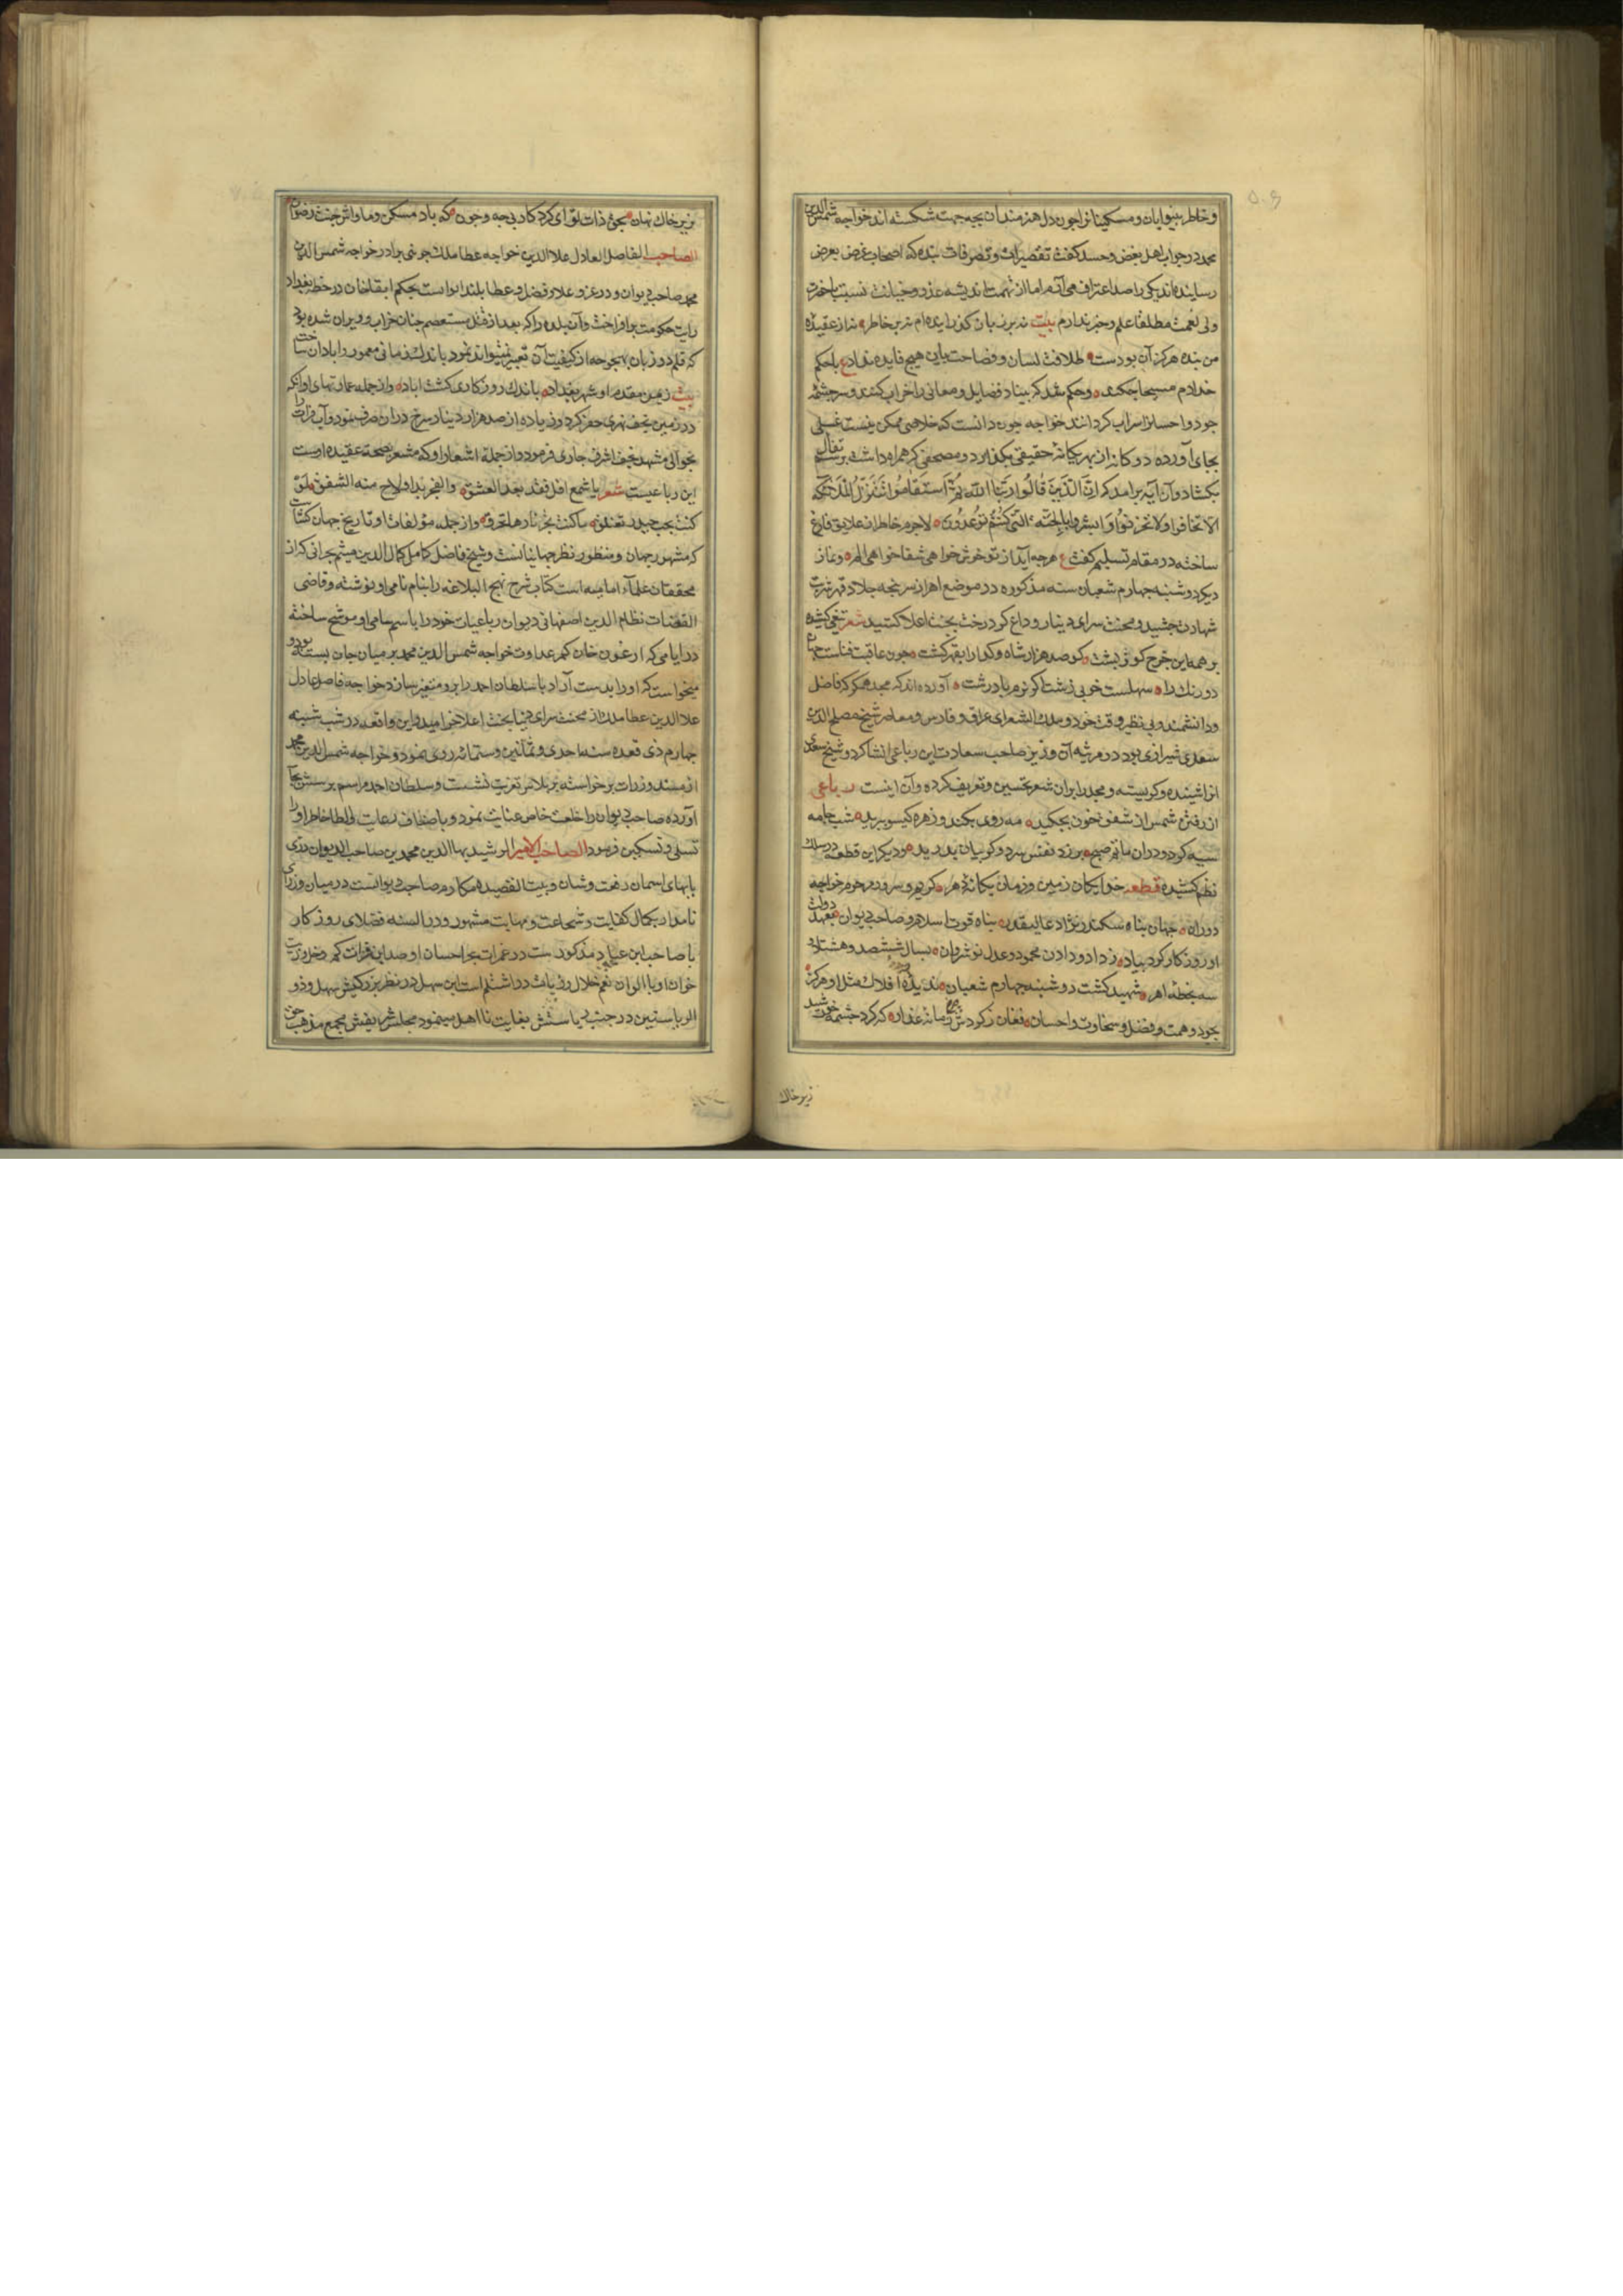 و خاطر بینوایان و مسکینانرا چون دل هنرمندان بچه جهت شکسته اند خواجه شمس الدین
محمد در جواب اهل بغض و حسد کفت تقصیرات و تصرفات بنده که اصحاب غرض بعرض
رسانیده اند یکی را صد اعتراف می آرم اما از تهمت اندیشه غدر و خیانت نسبت باحضرت
ولی نعمت مطلقا علم و خبر ندارم بیت نه بر زبان کذرانیده ام نه بر خاطر نه از عقیده
من بنده هرکز آن بودست طلاقت لسان و فصاحت بیان هیچ فایده نداد ع با حکم
خدا دم مسیحا چکند و حکم شد که بنیاد فضایل و معانی را خراب کنند و سرچشمه
جود و احسانرا سراب کردانند خواجه چون دانست که خلاصی ممکن نیست غسلی
بجای آورده دوکانه از بهر یکانه حقیقی بکذارد و مصحفی که همراه داشت برسم تفال
بکشاد و آن آیه برآمد که ان الذین قالوا ربنا الله ثم استقاموا تتنزل علیهم الملائکه
الا تخافوا ولا تحزنوا و ابشروا بالجنه التی کنتم توعدون لاجرم خاطر از علایق فارغ
ساخته در مقام تسلیم کفت ع هرچه آید از تو خوش خواهی شفا خواهی الم و نماز
دیکر دوشنبه چهارم شعبان سنه مذکوره در موضع اهر از سرپنجه جلاد قهر شربت
شهادت چشید و محنت سرای دنیا را وداع کرد رخت بجنت اعلا کشید شعر تیغی کشیده
بر همه این چرخ کوژپشت کو صد هزار شاه و کدا را بقهر کشت چون عاقبت فناست جهان
دو رنک را سهلست خوبی زشت اکر نرم یا درشت آورده اند که مجد همکر که فاضل
و دانشمند و بی نظیر وقت خود و ملک الشعرای عراق و فارس و معاصر شیخ مصلح الدین
سعدی شیرازی بود در مرثیه آن وزیر صاحب سعادت این رباعی انشا کرد و شیخ سعدی
انرا شنیده و کریسته و مجد را بران شعر تحسین و تعریف کرده و آن اینست رباعی
از رفتن شمس از شفق خون بچکید مه روی بکند و زهره کیسو ببرید شب جامه
سیه کرد در ان ماتم صبح بر زد نفس سرد و کریبان بدرید و دیکر این قطعه در سلک
نظم کشیده قطعه خدایکان زمین و زمان یکانه دهر کریم و سرور و مخدوم خواجه
دوران جهان پناه سکندر نژاد عالیقدر پناه قوت اسلام و صاحب دیوان بعهد دولت
او روزکار کرد بیاد ز داد و دادن محمود و عدل نوشروان بسال ششصد و هشتاد
سه بخطه اهر شهید کشت دوشنبه چهارم شعبان ندیده دیده افلاک مثل او هرکز
بجود و همت و فضل و سخاوت و احسان فغان ز کردش زمانه غدار که کرد چشمه خورشید
زیر خاک
بزیر خاک نهان بجی ذات تو ای کردکار بی چه و چون که باد مسکن و ماواش جنت رضوان
الصاحب الفاضل العادل علا الدین خواجه عطا ملک جوینی برادر خواجه شمس الدین
محمد صاحب دیوان و در عز و علا و فضل و عطا بلند اواست بحکم ابقا خان در خطه بغداد
رایت حکومت برافراخت و آن بلده را که بعد از قتل مستعصم چنان خراب و ویران شده بود
که قلم دو زبان بهیچ وجه از کیفیت آن تعبیر نمیتواند نمود باندک زمانی معمور و ابادان ساخت
بیت زیمن مقدم او شهر بغداد باندک روزکاری کشت اباد و از جمله عمارتهای او آنکه
در زمین نجف نهری حفر کرد و زیاده از صد هزار دینار سرخ در ان صرف نمود و آب فرات را
بحوالی مشهد نجف اشرف جاری فرمود و از جمله اشعار او که مشعر بصحه عقیده اوست
این رباعیست شعر یا شمع افل فقد بعد العشق والفجر بدا ولاح منه الشفق
و از جمله مؤلفات او تاریخ جهان کشاست
که مشهور جهان و منظور نظر جهانیانست و شیخ فاضل کامل کمال الدین میثم بحرانی که از
محققان علماء امامیه است کتاب شرح نهج البلاغه را بنام نامی او نوشته و قاضی
القضات نظام الدین اصفهانی دیوان رباعیات خود را باسم سامی او موشح ساخته
در ایامی که ارغون خان کمر عداوت خواجه شمس الدین محمد بر میان جان بسته بود و
میخواست که او را بدست آرد با سلطان احمد را برو متغیر سازد خواجه فاضل عادل
علا الدین عطا ملک از محنت سرای دنیا بجنت اعلا خرامید و این واقعه در شب شنبه
چهارم ذی قعده سنه احدی و ثمانین و ستمائه روی نمود و خواجه شمس الدین محمد
از مسند وزارت برخواسته بر پلاس تعزیت نشست و سلطان احمد مراسم پرسش بجای
آورده صاحب دیوان را خلعت خاص عنایت نمود و باصناف رعایت و الطاف خاطر او را
تسلی و تسکین فرمود الصاحب الامیر الرشید بها الدین محمد بن صاحب الدیوان دری
بابهای اسمان رفعت و شان و بیت القصیده مکارم صاحب دیوانست در میان وزرای
نامدار بکمال کفایت و شجاعت و مهابت مشهور و در السنه فضلای روزکار
با صاحب ابن عباد مذکور است در غمرات بحر احسان او صد ابن فرات کم
خوان او با الوان نعم خلال در نظر بزرکیش سهل و ذو
الریاستین در جنب ریاستش بغایت نا اهل مینمود مجلس شریفش مجمع مذهب